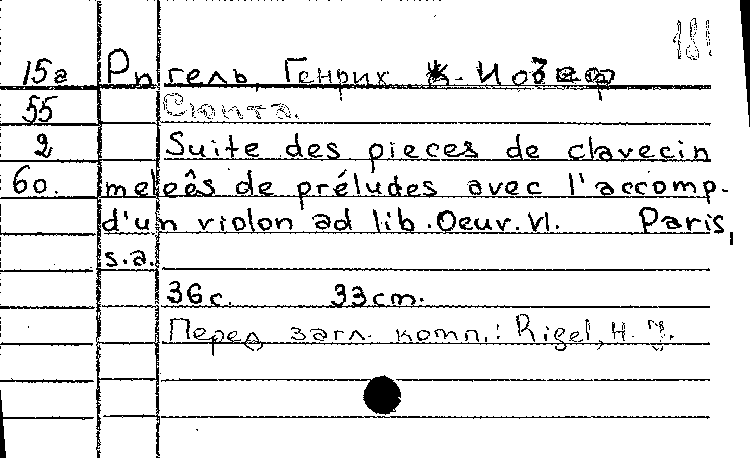 181
15г Ригель, Генрих Иозеф
55 Сюита.
2 Suite des pieces de clavecin
60. meleês de préludes avec l'accomp.
d'un violon ad lib. Oeuv. VI. Paris,
s.a.
36с. 33cm.
Перед загл. комп.: Rigel, H. J.